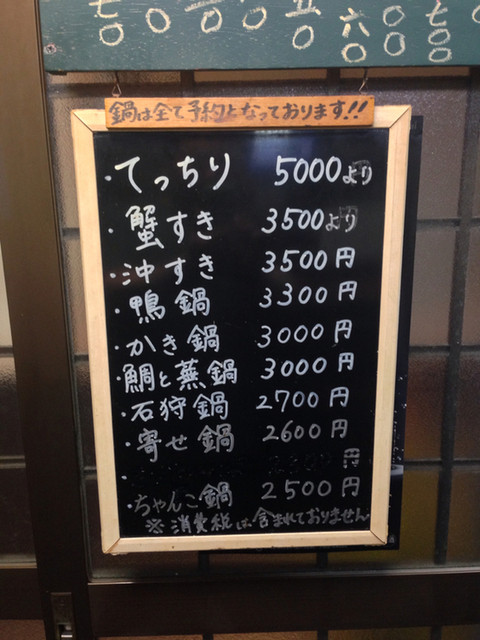 七〇
〇
五〇
六〇〇
七〇〇
鍋は全て予約となっております!!
・てっちり 5000より
・蟹すき 3500より
・沖すき 3500円
・鴨鍋 3300円
・かき鍋 3000円
・鯛と蕪鍋 3000円
・石狩鍋 2700円
・寄せ鍋 2600円
・ 円
・ちゃんこ鍋 2500円
※消費税は含まれておりません